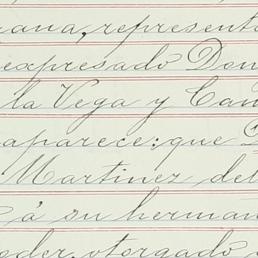 rana, represent
expresado Don
la Vega y Can
aparece: que D
Martinez del
á su herman
oder, otorgado